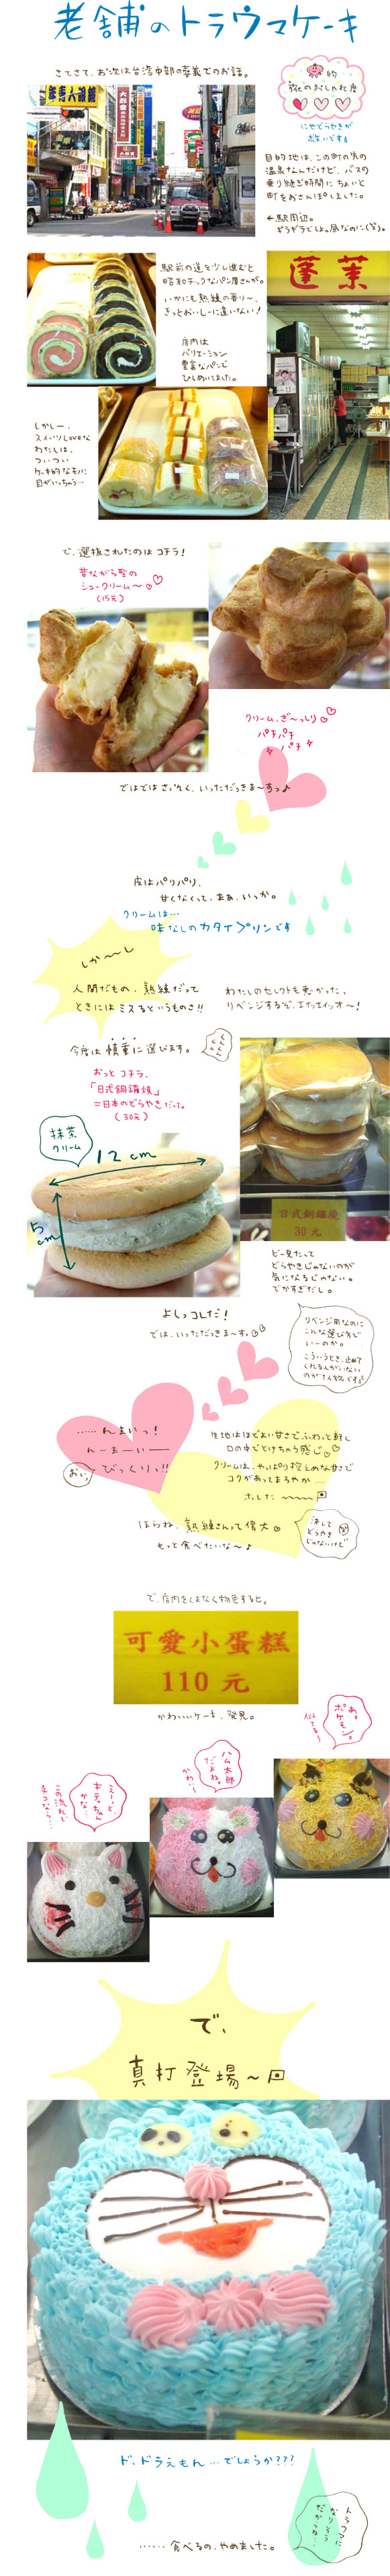 老舗のトラウマケーキ
さてさて、お次は台湾中部の嘉義でのお話。
的
旅のおしゃれ度
にせどらやきが
救いです
目的地は、この町の先の
温泉なんだけど、バスの
乗り継ぎ時間にちょいと
町をおさんぽしました。
←駅周辺。
ギラギラでしょ。昼なのに(笑)。
駅前の道を少し進むと
昭和チックなパン屋さんが。
いかにも熟練の香り〜、
きっとおいしーに違いない!
蓬莱
店内は
バリエーション
豊富なパンで
ひしめいてました。
しかしー、
スイーツLoveな
わたしは、
ついつい
ケーキ的なモノに
目がいっちゃう…
で、選抜されたのはコチラ!
昔ながら型の
シュークリーム〜
(15元)
クリーム、ぎ〜っしり
パチパチ
パチ
ではではさっそく、いっただっきま〜すっ♪
皮はパリパリ、
甘くなくって、まあ、いっか。
クリームは…
味なしのカタイプリンです
しか〜し
人間だもの、熟練だって
ときにはミスるというものさ!!
わたしのセレクトも悪かった、
リベンジするぞ、エイエイオー!
今度は慎重に選びます。
おっとコチラ、
「日式銅鑼燒」
=日本のどらやきだって。
(30元)
抹茶
クリーム
12cm
5cm
日式銅鑼燒
30元
どー見たって
どらやきじゃないのが
気になるじゃない。
でかすぎだし。
よしっコレだ!
では、いっただっきま〜すっ
リベンジ用なのに
こんな選び方で
いーのか。
こういうとき、止めて
くれる人がいない
のが1人旅です
……んまいっ!
んーまーいー
おいっ
びっくりっ!!
生地はほどよい甘さでふわっと軽く
口の中でとけちゃう感じ
クリームは、やっぱり控えめな甘さで
コクがあってまろやか
ホレた〜
ほらね、熟練さんって偉大
もっと食べたいな〜♪
決して
どらやき
じゃないけど
で、店内をくまなく物色すると。
可愛小蛋糕
110元
かわいいケーキ、発見。
あ。
ポケモン。
似てる!
ハム太郎
だよね。
かわいー
えーっと、
キティちゃん
かな…
この流れで
ネコなら…
で、
真打登場〜
ド、ドラえもん…でしょうか???
トラウマに
なりそう
だからね…
……食べるの、やめました。